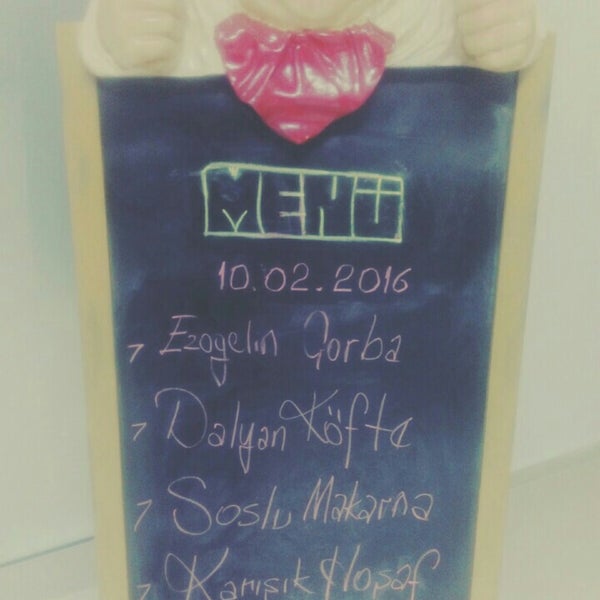 MENÜ
10.02.2016
Ezogelin Çorba
Dalyan Köfte
Soslu Makarna
Karışık Hoşaf